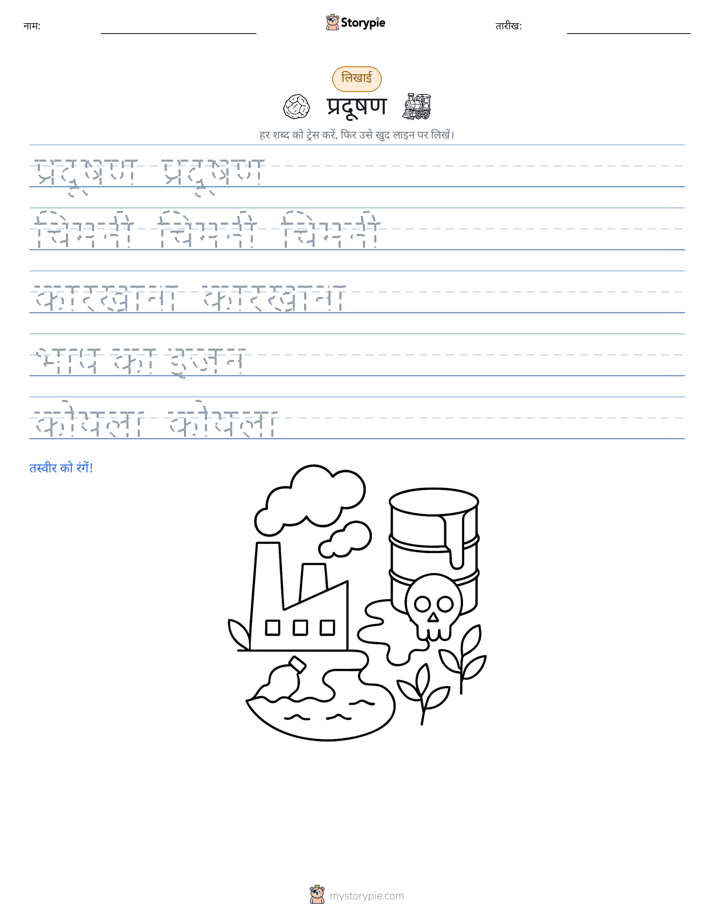 नाम:
Storypie
तारीख:
लिखाई
प्रदूषण
हर शब्द को ट्रेस करें, फिर उसे खुद लाइन पर लिखें।
प्रदूषण प्रदूषण
चिमनी चिमनी चिमनी
कारखाना कारखाना
भाप का इंजन
कोयला कोयला
तस्वीर को रंगें!
mystorypie.com